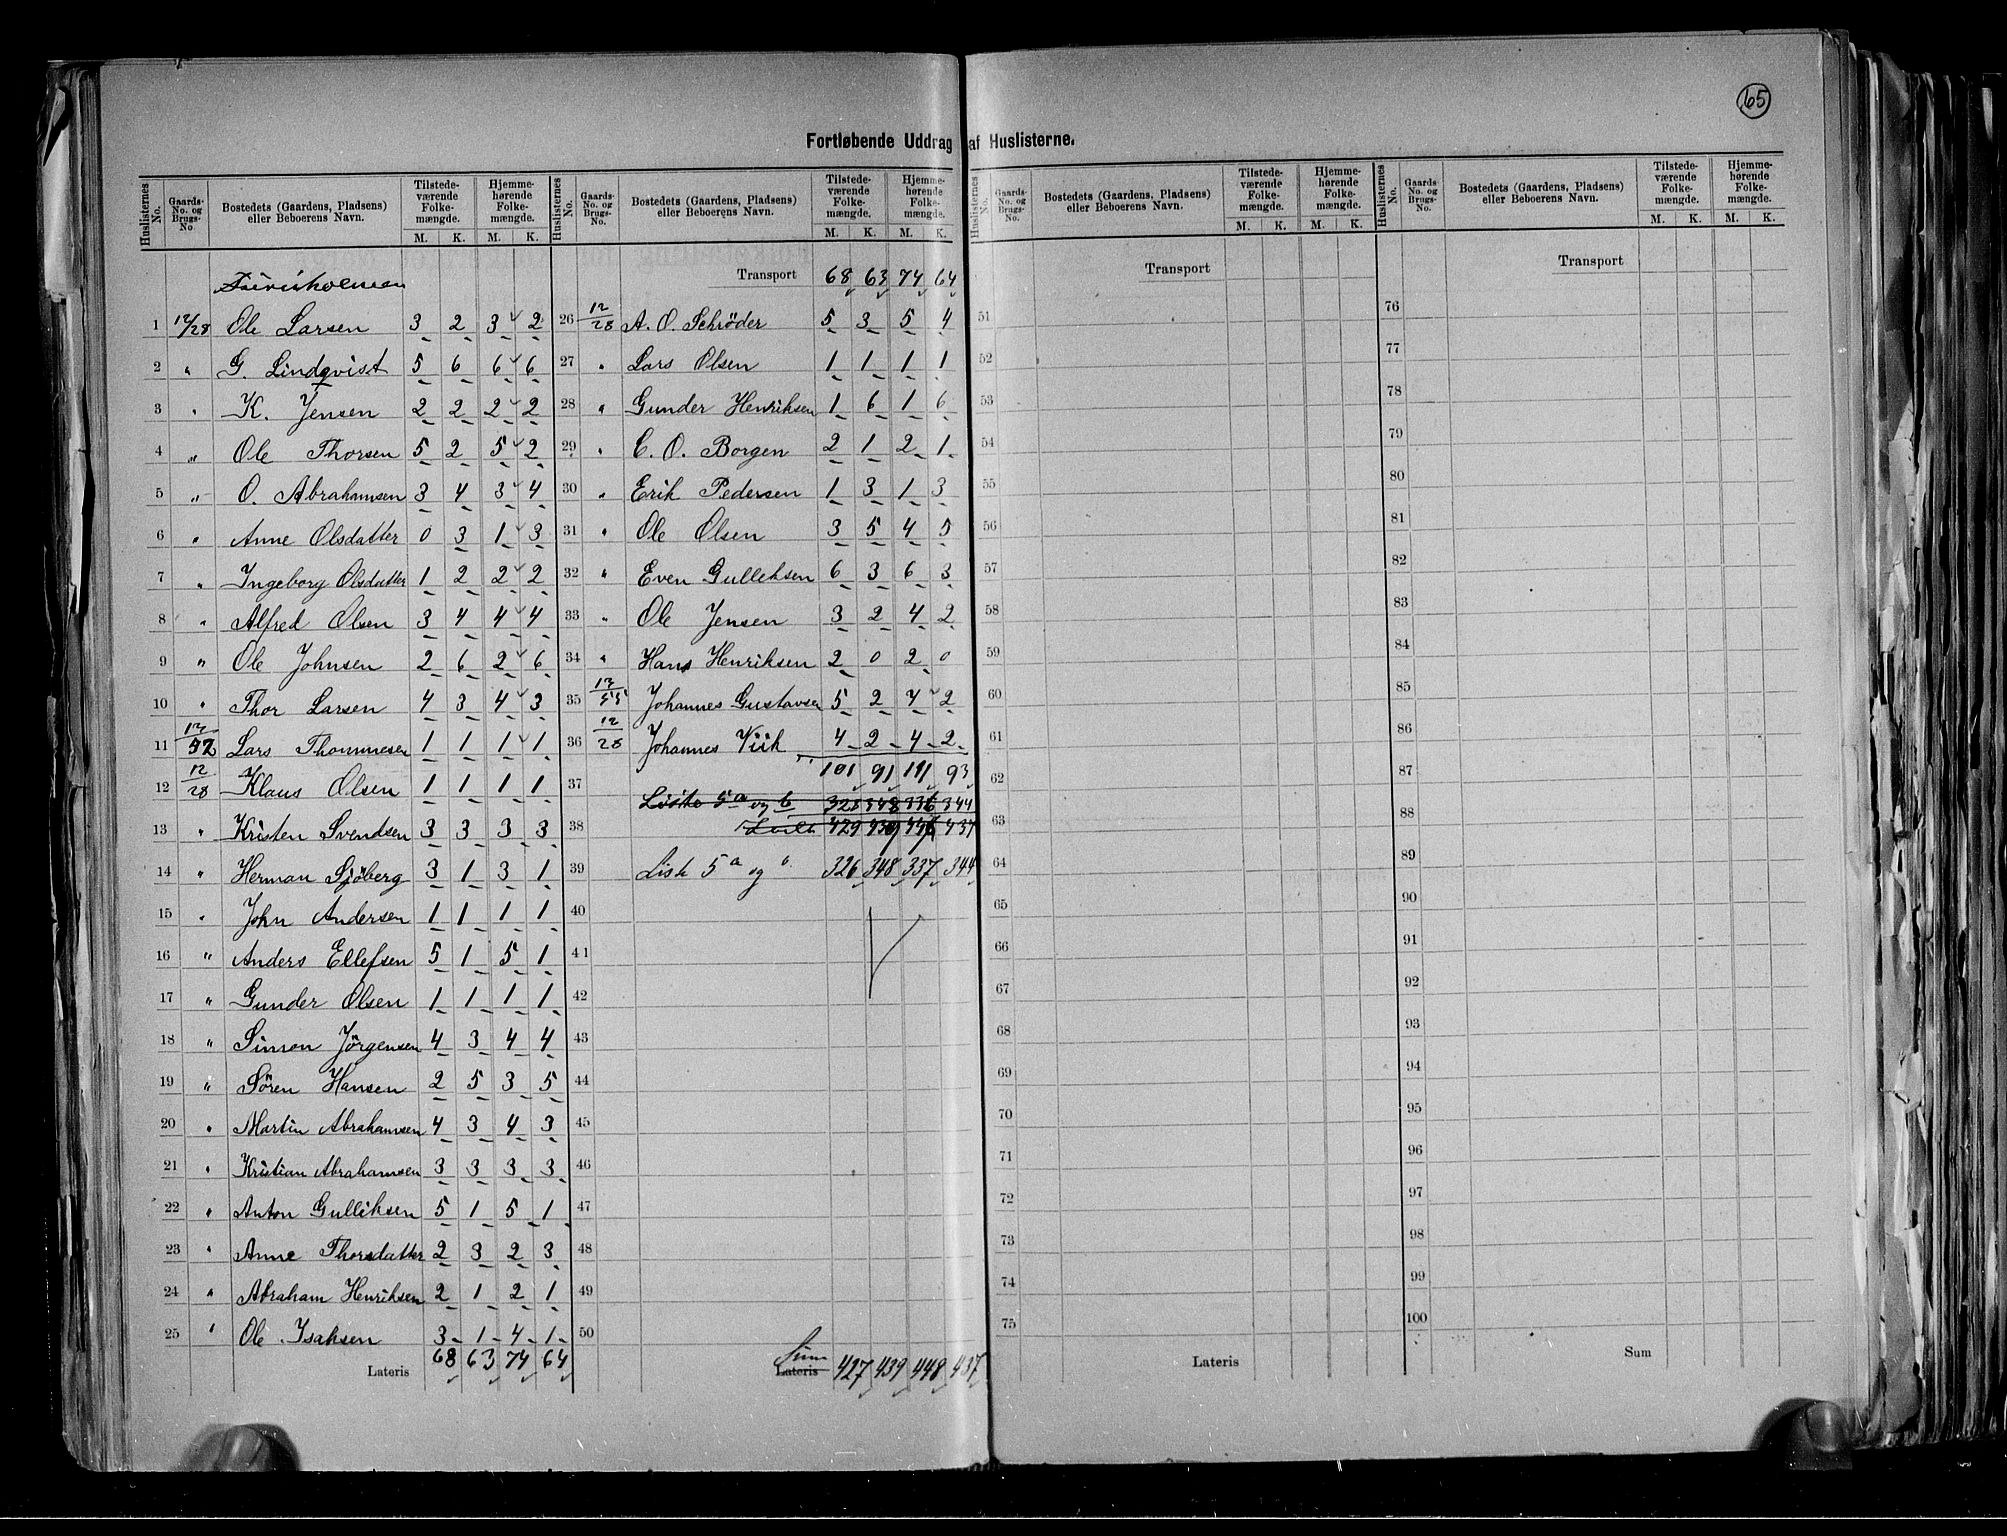 65
Fortløbende Uddrag af Huslisterne.
Huslisternes No. Gaards-No. og Brugs-No. Bostedets (Gaardens, Pladsens) eller Beboerens Navn. Tilstedeværende Folkemængde. M. K. Hjemmehørende Folkemængde. M. K.
Huslisternes No. Gaards-No. og Brugs-No. Bostedets (Gaardens, Pladsens) eller Beboerens Navn. Tilstedeværende Folkemængde. M. K. Hjemmehørende Folkemængde. M. K.
1 12/28 Ole Larsen 3 2 3 2
2 " G. Lindqvist 5 6 6 6
3 " K. Jensen 2 2 2 2
4 " Ole Thorsen 5 2 5 2
5 " O. Abrahamsen 3 4 3 4
6 " Anne Olsdatter 0 3 1 3
7 " Ingeborg Olsdatter 1 2 2 2
8 " Alfred Olsen 3 4 4 4
9 " Ole Johnsen 2 6 2 6
10 " Thor Larsen 4 3 4 3
11 12/52 Lars Thommesen 1 1 1 1
12 12/28 Klaus Olsen 1 1 1 1
13 " Kristen Svendsen 3 3 3 3
14 " Herman Sjöberg 3 1 3 1
15 " John Andersen 1 1 1 1
16 " Anders Ellefsen 5 1 5 1
17 " Gunder Olsen 1 1 1 1
18 " Simon Jörgensen 4 3 4 4
19 " Sören Hansen 2 5 3 5
20 " Martin Abrahamsen 4 3 4 3
21 " Kristian Abrahamsen 3 3 3 3
22 " Anton Gulliksen 5 1 5 1
23 " Anne Thorsdatter 2 3 2 3
24 " Abraham Henriksen 2 1 2 1
25 " Ole Isaksen 3 1 4 1
Lateris 68 63 74 64
Transport 68 63 74 64
26 12/28 A. O. Schrøder 5 3 5 4
27 " Lars Olsen 1 1 1 1
28 " Gunder Henriksen 1 6 1 6
29 " C. O. Borgen 2 1 2 1
30 " Erik Pedersen 1 3 1 3
31 " Ole Olsen 3 5 4 5
32 " Even Gulleksen 6 3 6 3
33 " Ole Jensen 3 2 4 2
34 " Hans Henriksen 2 0 2 0
35 12/55 Johannes Gustavsen 5 2 7 2
36 12/28 Johannes Viik 4 2 4 2
101 91 111 93
37 Liste 5a og b 344
38 429 437
39 Liste 5a og b 326 348 337 344
40
41
42
43
44
45
46
47
48
49
50
Sum Lateris 427 439 448 437
Huslisternes No. Gaards-No. og Brugs-No. Bostedets (Gaardens, Pladsens) eller Beboerens Navn. Tilstedeværende Folkemængde. M. K. Hjemmehørende Folkemængde. M. K.
Transport
51
52
53
54
55
56
57
58
59
60
61
62
63
64
65
66
67
68
69
70
71
72
73
74
75
Lateris
Huslisternes No. Gaards-No. og Brugs-No. Bostedets (Gaardens, Pladsens) eller Beboerens Navn. Tilstedeværende Folkemængde. M. K. Hjemmehørende Folkemængde. M. K.
Transport
76
77
78
79
80
81
82
83
84
85
86
87
88
89
90
91
92
93
94
95
96
97
98
99
100
Sum